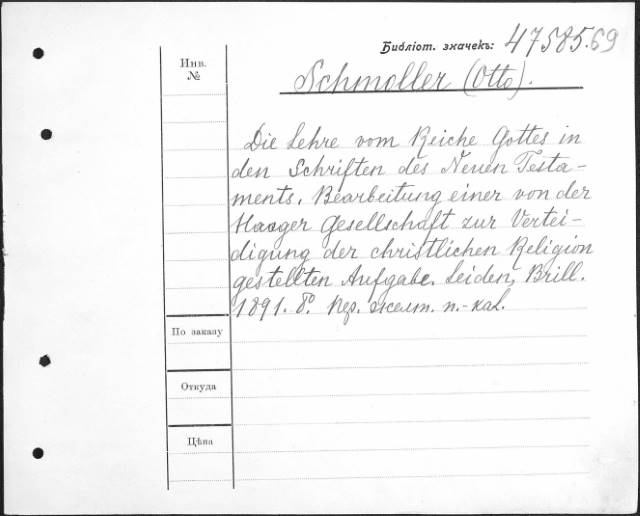 Библіот. значекъ: 47585.69
Инв.
№
Schmoller (Otto).
Die Lehre vom Reiche Gottes in
den Schriften des Neuen Testa-
ments. Bearbeitung einer von der
Haager Gesellschaft zur Vertei-
digung der christlichen Religion
gestellten Aufgabe. Leiden, Brill.
1891. 8º. Пер. желт. п.-кал.
По заказу
Откуда
Цѣна